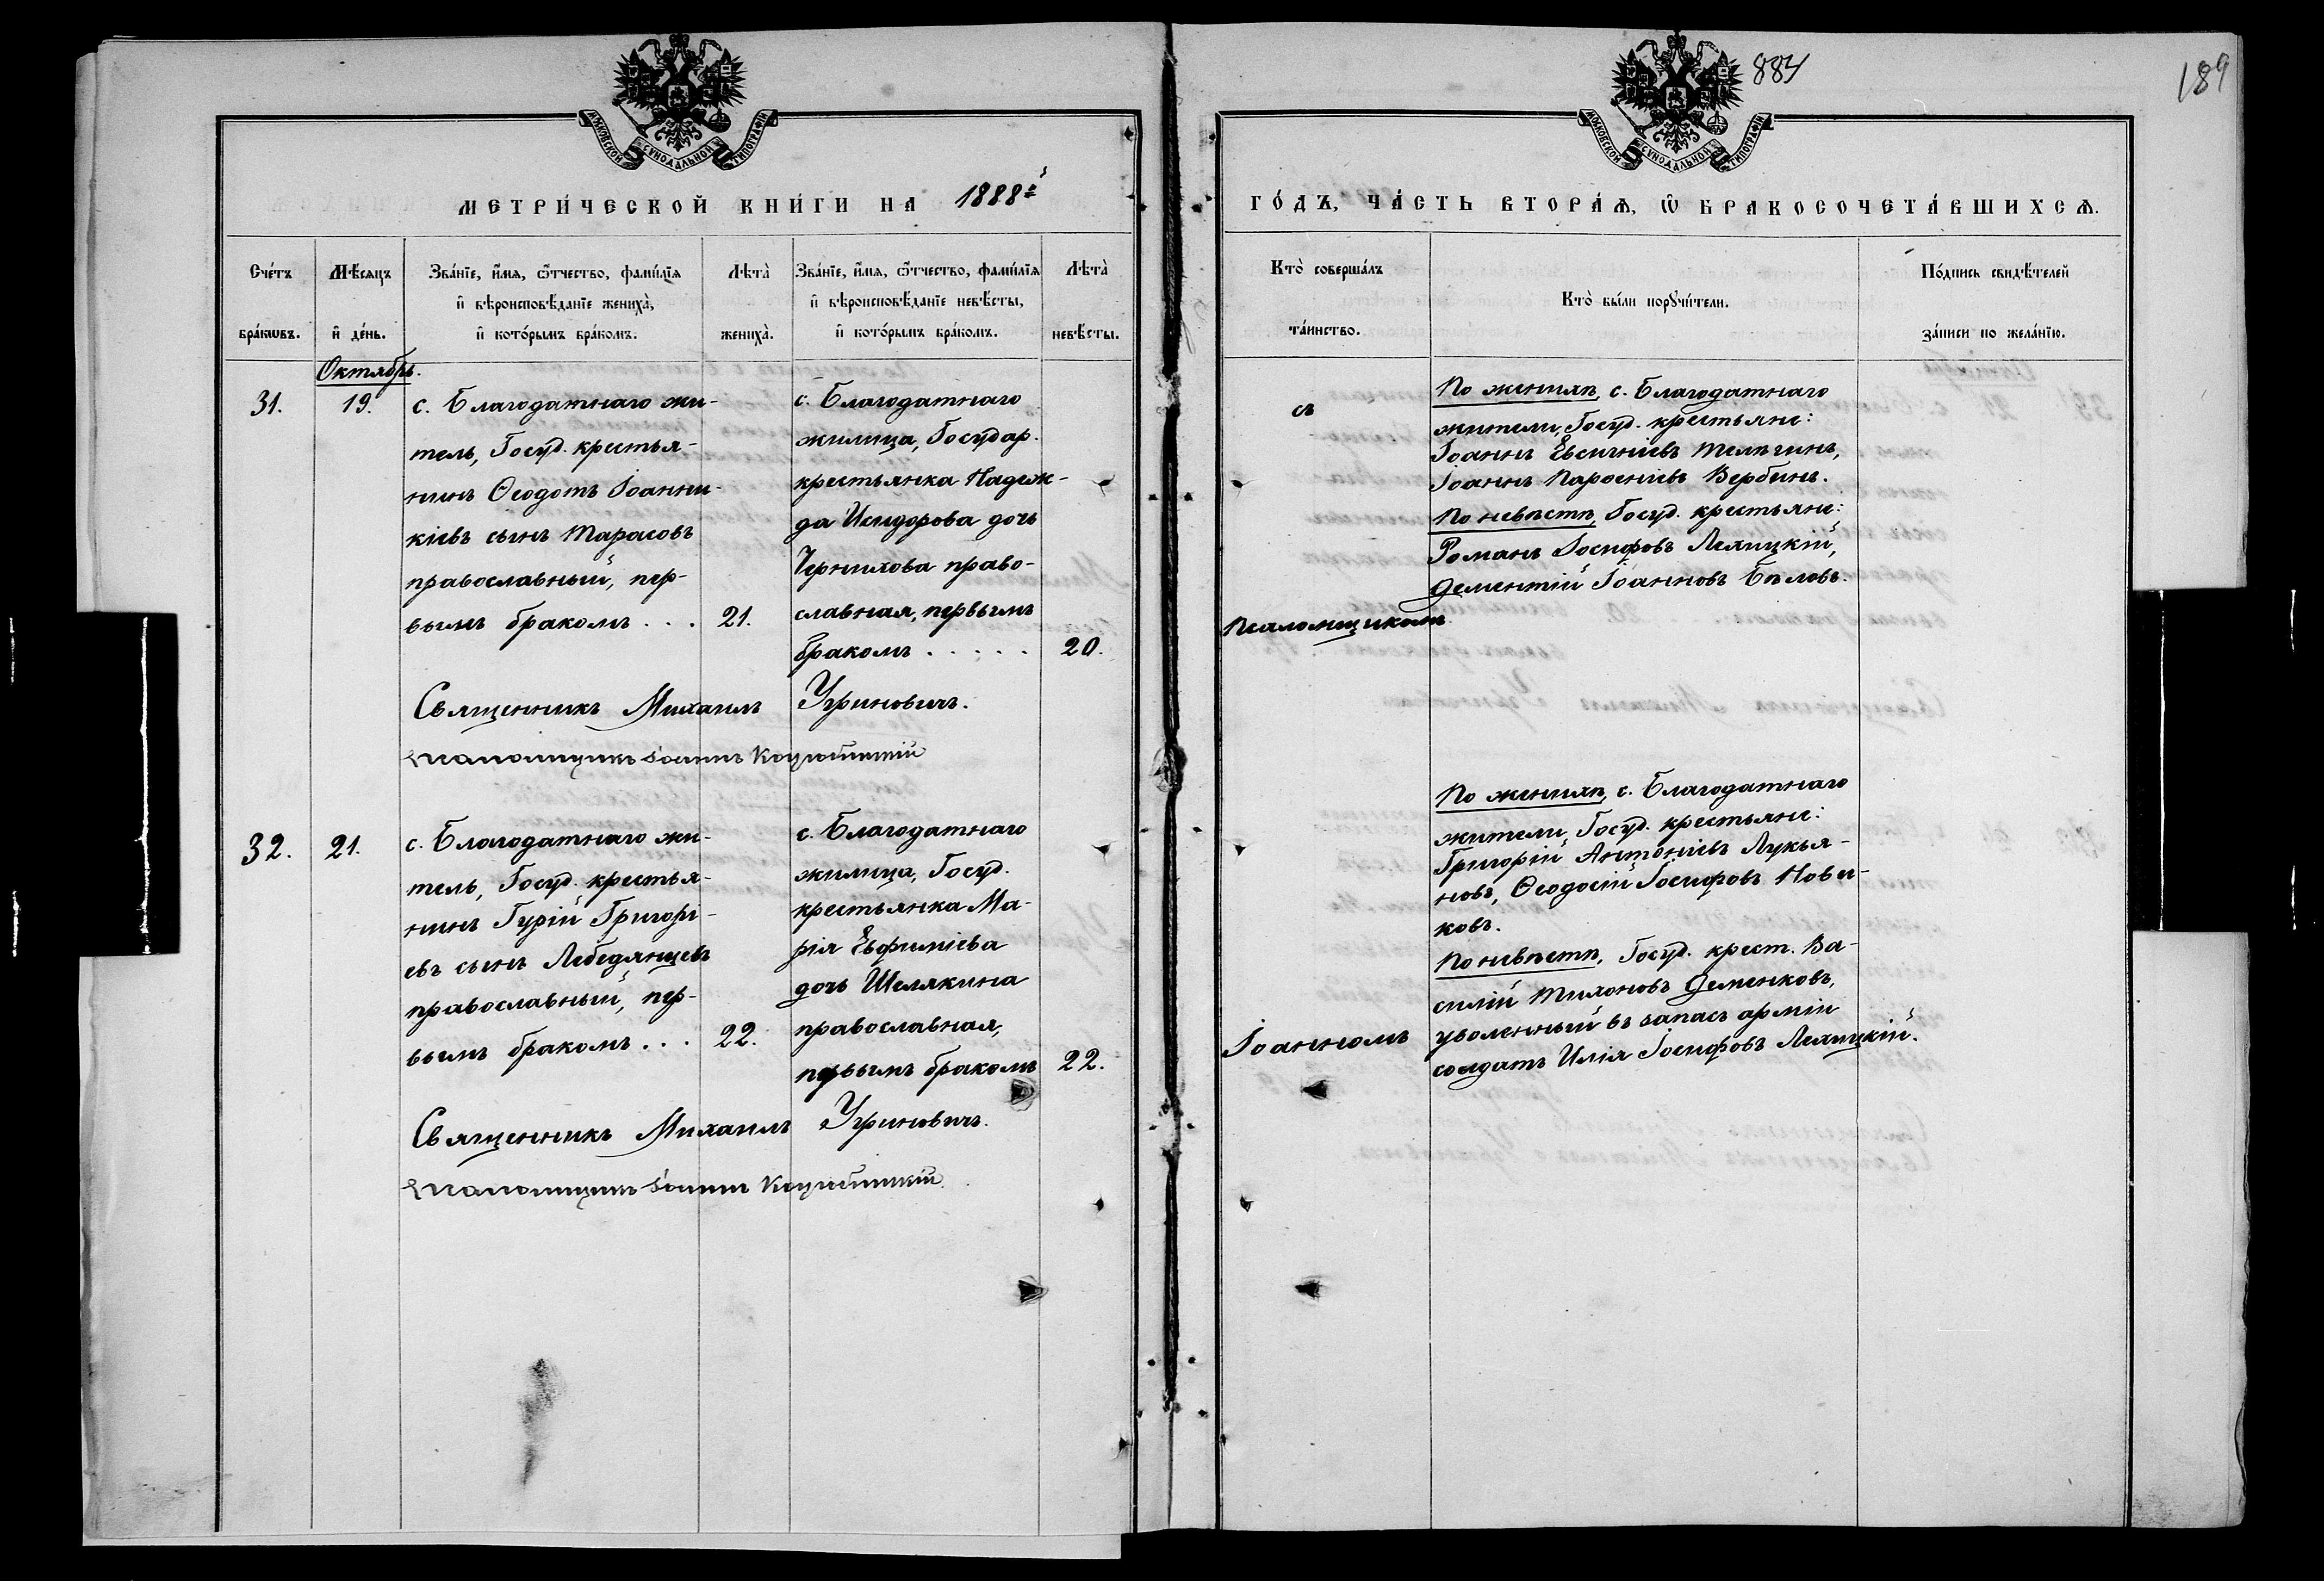 МОСКОВСКОЙ СѴНОДАЛЬНОЙ ТИПОГРАФІИ
МЕТРИ́ЧЕСКОЙ КНИ́ГИ НА 1888й
Сче́тъ бра́кѡвъ.
Мѣ́сяцъ и҆ де́нь.
Зва́нїе, и҆́мѧ, ѻ҆́тчество, фами́лїѧ
и҆ вѣроисповѣ́данїе жениха̀,
и҆ кото́рымъ бра́комъ.
Лѣта̀ жениха̀.
Зва́нїе, и҆́мѧ, ѻ҆́тчество, фами́лїѧ
и҆ вѣроисповѣ́данїе невѣ́сты,
и҆ кото́рымъ бра́комъ.
Лѣта̀ невѣ́сты.
Октябрь.
31.
19.
с. Благодатнаго жи-
тель, Госуд. крестья-
нинъ Ѳеодотъ Іоанни-
кіевъ сынъ Тарасовъ
православный, пер-
вымъ бракомъ . . .
21.
с. Благодатнаго
жилица, Государ.
крестьянка Надеж-
да Исидорова дочь
Чернихова право-
славная, первымъ
бракомъ . . . . .
20.
Священникъ Михаилъ Угриновичъ.
Псаломщикъ Іоаннъ
32.
21.
с. Благодатнаго жи-
тель, Госуд. крестья-
нинъ Гурій Григорі-
евъ сынъ Лебедянцевъ
православный, пер-
вымъ бракомъ . . .
22.
с. Благодатнаго
жилица, Госуд.
крестьянка Ма-
рія Евфиміева
дочь Шелякина
православная,
первымъ бракомъ
22.
Священникъ Михаилъ Угриновичъ.
Псаломщикъ Іоаннъ
884
189
МОСКОВСКОЙ СѴНОДАЛЬНОЙ ТИПОГРАФІИ
ГО́ДЪ, ЧА́СТЬ ВТОРА́Ѧ, Ѡ҆ БРАКОСОЧЕТА́ВШИХСѦ.
Кто̀ соверша́лъ
та́инство.
Кто̀ бы́ли порꙋчи́тели.
По́дпись свидѣ́телей
за́писи по жела́нїю.
съ
Псаломщикомъ
Іоанномъ
По женихѣ, с. Благодатнаго
жители, Госуд. крестьяне:
Іоаннъ Евсигніевъ Телѣгинъ,
Іоаннъ Парѳеніевъ Вербинъ.
По невѣстѣ, Госуд. крестьяне:
Романъ Іосифовъ Лехицкій,
Дементій Іоанновъ Бѣловъ.
По женихѣ, с. Благодатнаго
жители, Госуд. крестьяне:
Григорій Антоніевъ Лукья-
новъ, Ѳеодосій Іосифовъ Нови-
ковъ.
По невѣстѣ, Госуд. крест. Ва-
силій Тихоновъ Деменковъ,
уволенный въ запасъ арміи
солдатъ Илія Іосифовъ Лехицкій.